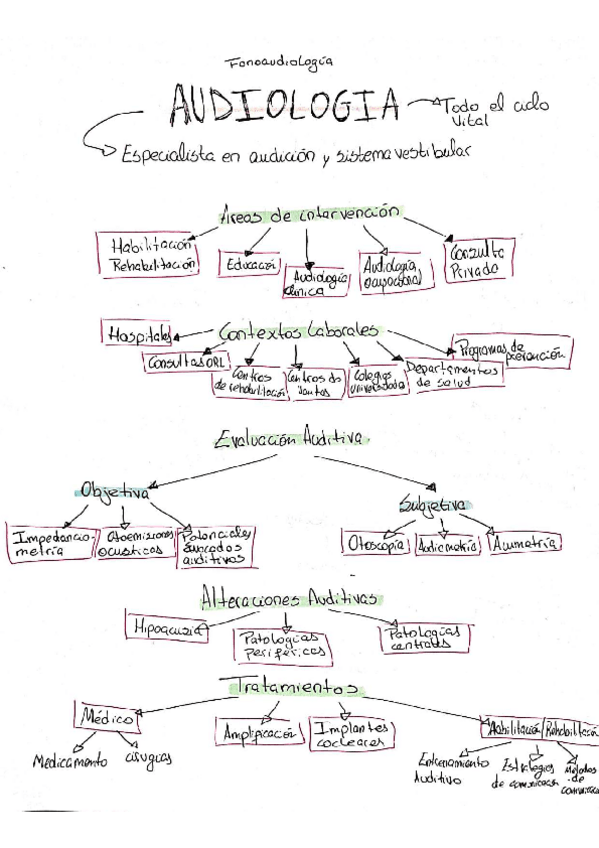 Fonoaudiología
AUDIOLOGIA
Todo el ciclo
vital
Especialista en audición y sistema vestibular
Áreas de intervención
Habilitación
Rehabilitación
Educación
Audiología
clínica
Audiología
ocupacional
Consulta
Privada
Contextos Laborales
Hospitales
Consultas ORL
Centros
de rehabilitación
Centros de
Colegios
Universidada
Departamentos
de salud
Programas de
prevención
Evaluación Auditiva
Objetiva
Subjetiva
Impedancio-
metría
Otoemisiones
acusticas
Potenciales
Evocados
auditivos
Otoscopía
Audiometría
Acumetría
Alteraciones Auditivas
Hipoacusia
Patologías
Periféricas
Patologías
centrales
Tratamientos
Médico
Amplificación
Implantes
cocleares
Habilitación/Rehabilitación
Medicamento
cirugías
Entrenamiento
Auditivo
Estrategias
de comunicación
Métodos
de
comunicación